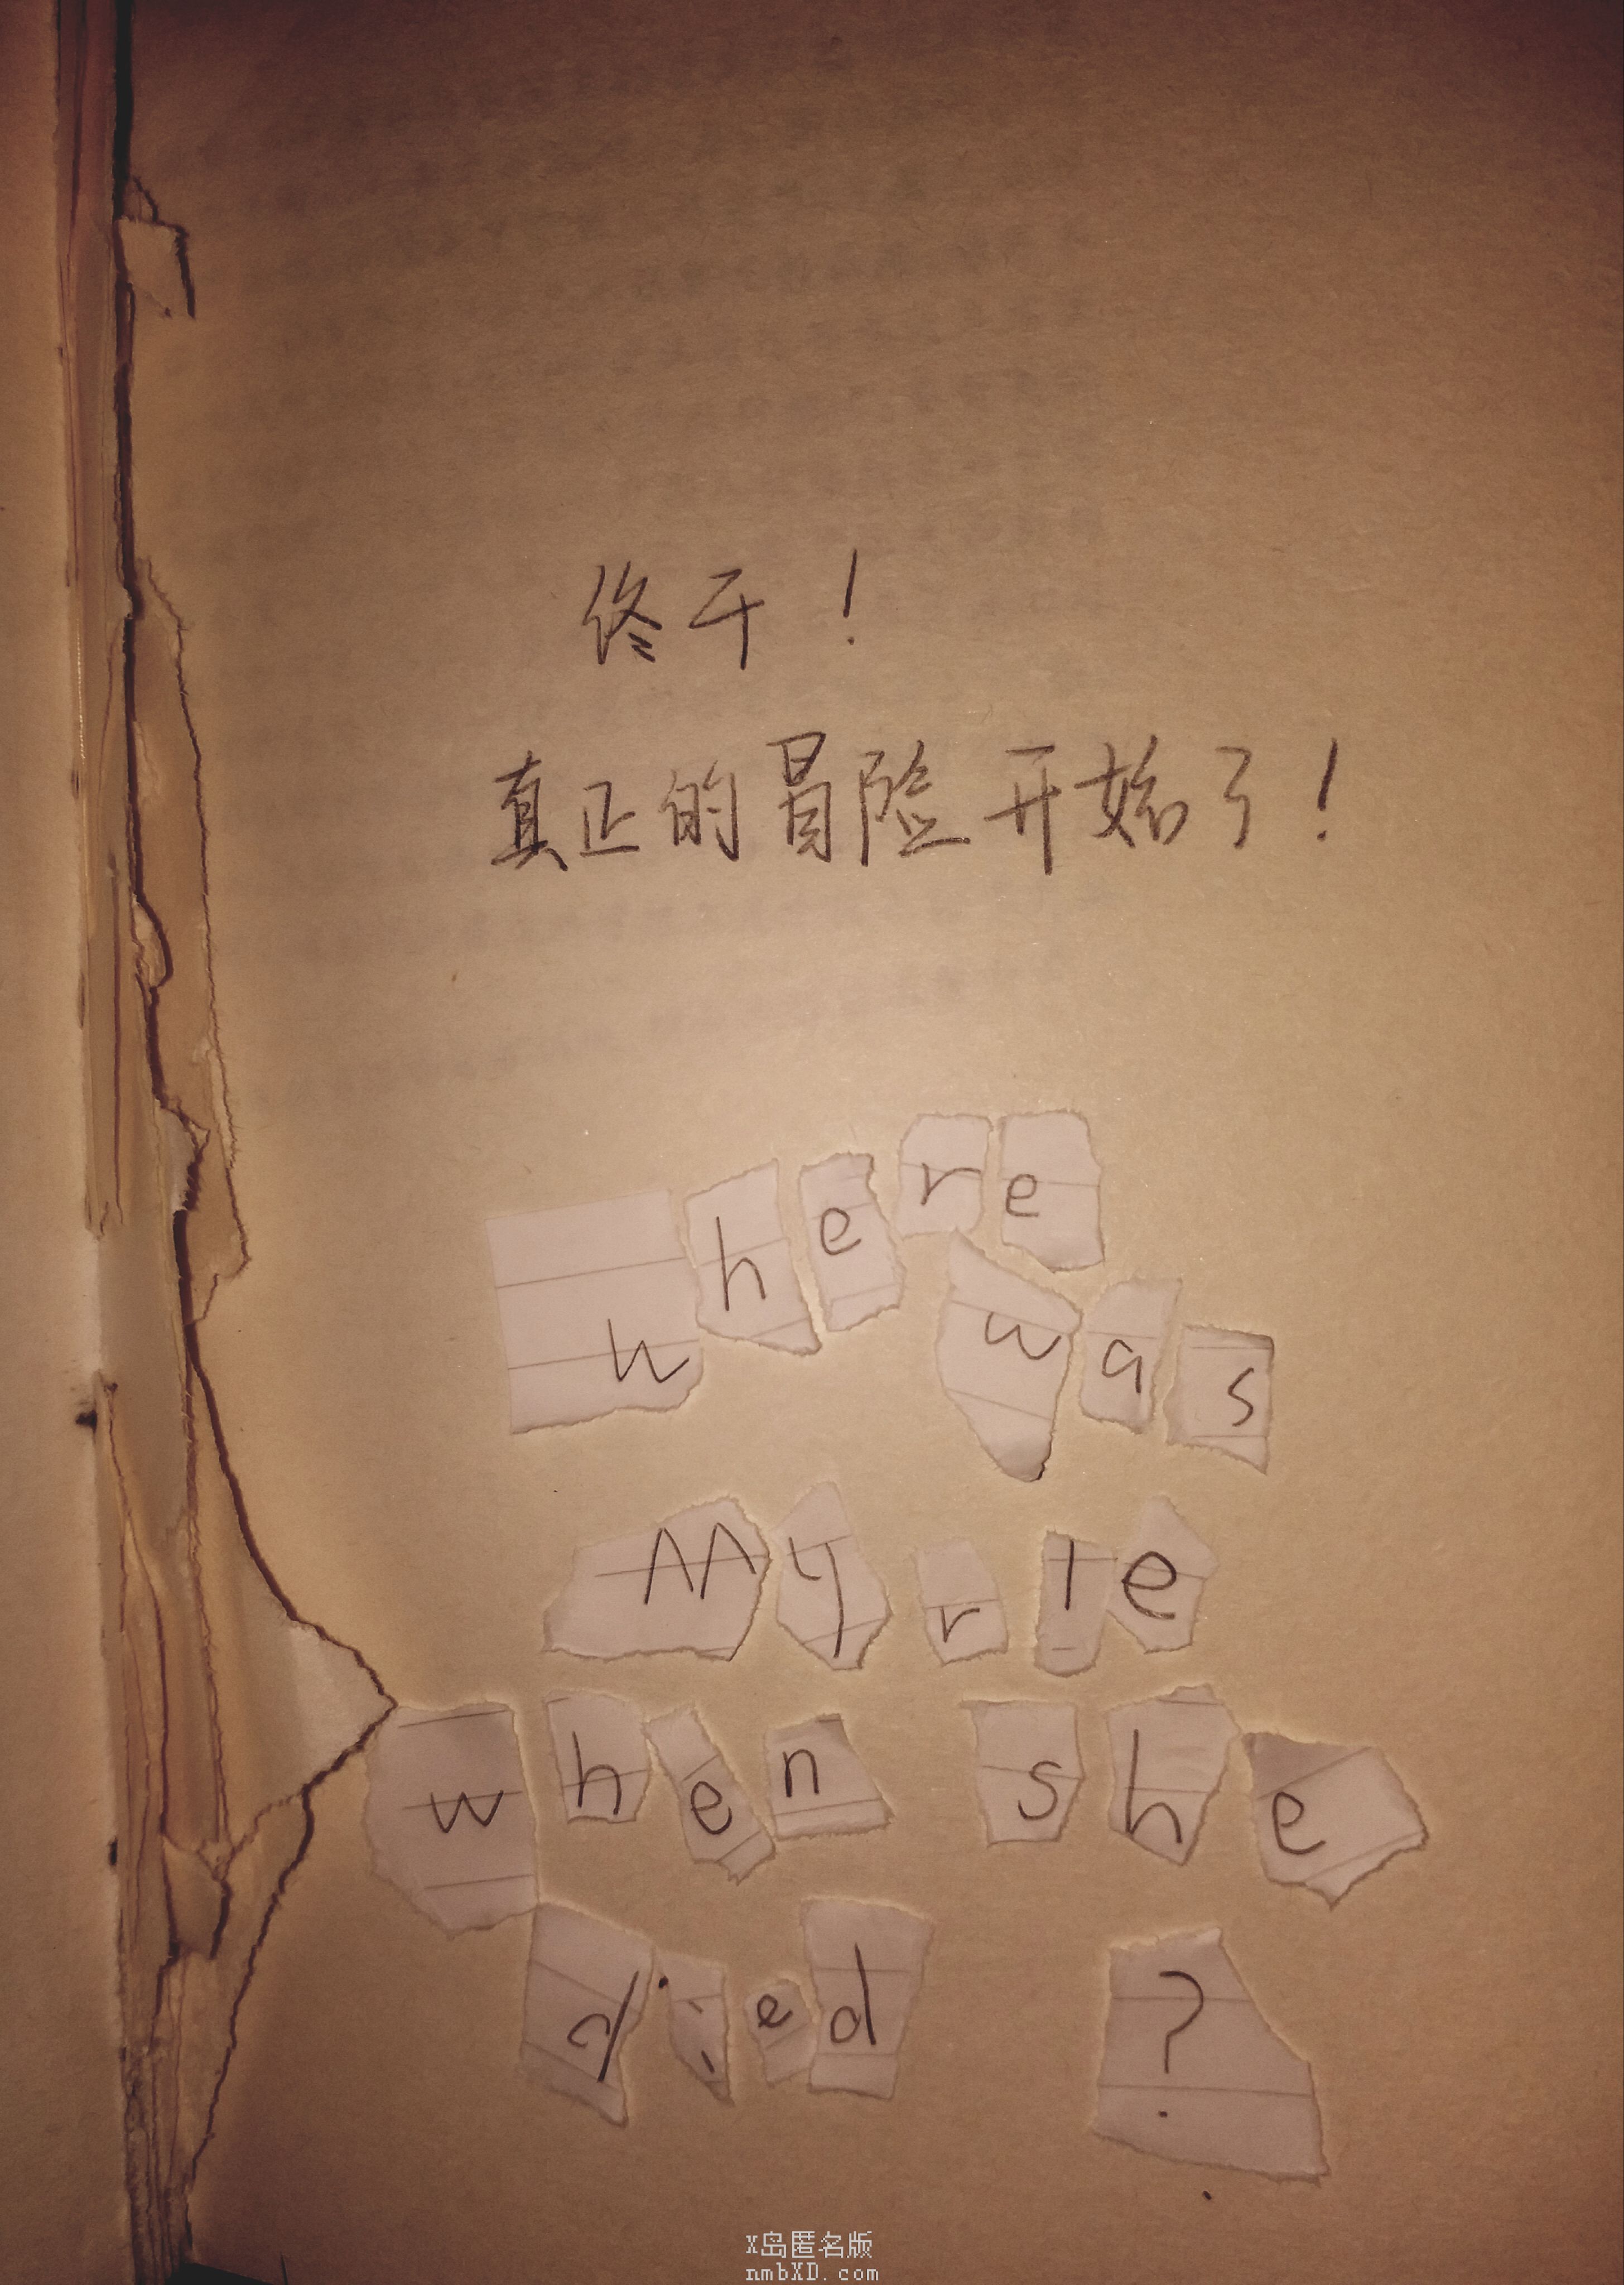 终于！
真正的冒险开始了！
where
was
Myrle
when she
died ?
X岛匿名版
nmbXD.com